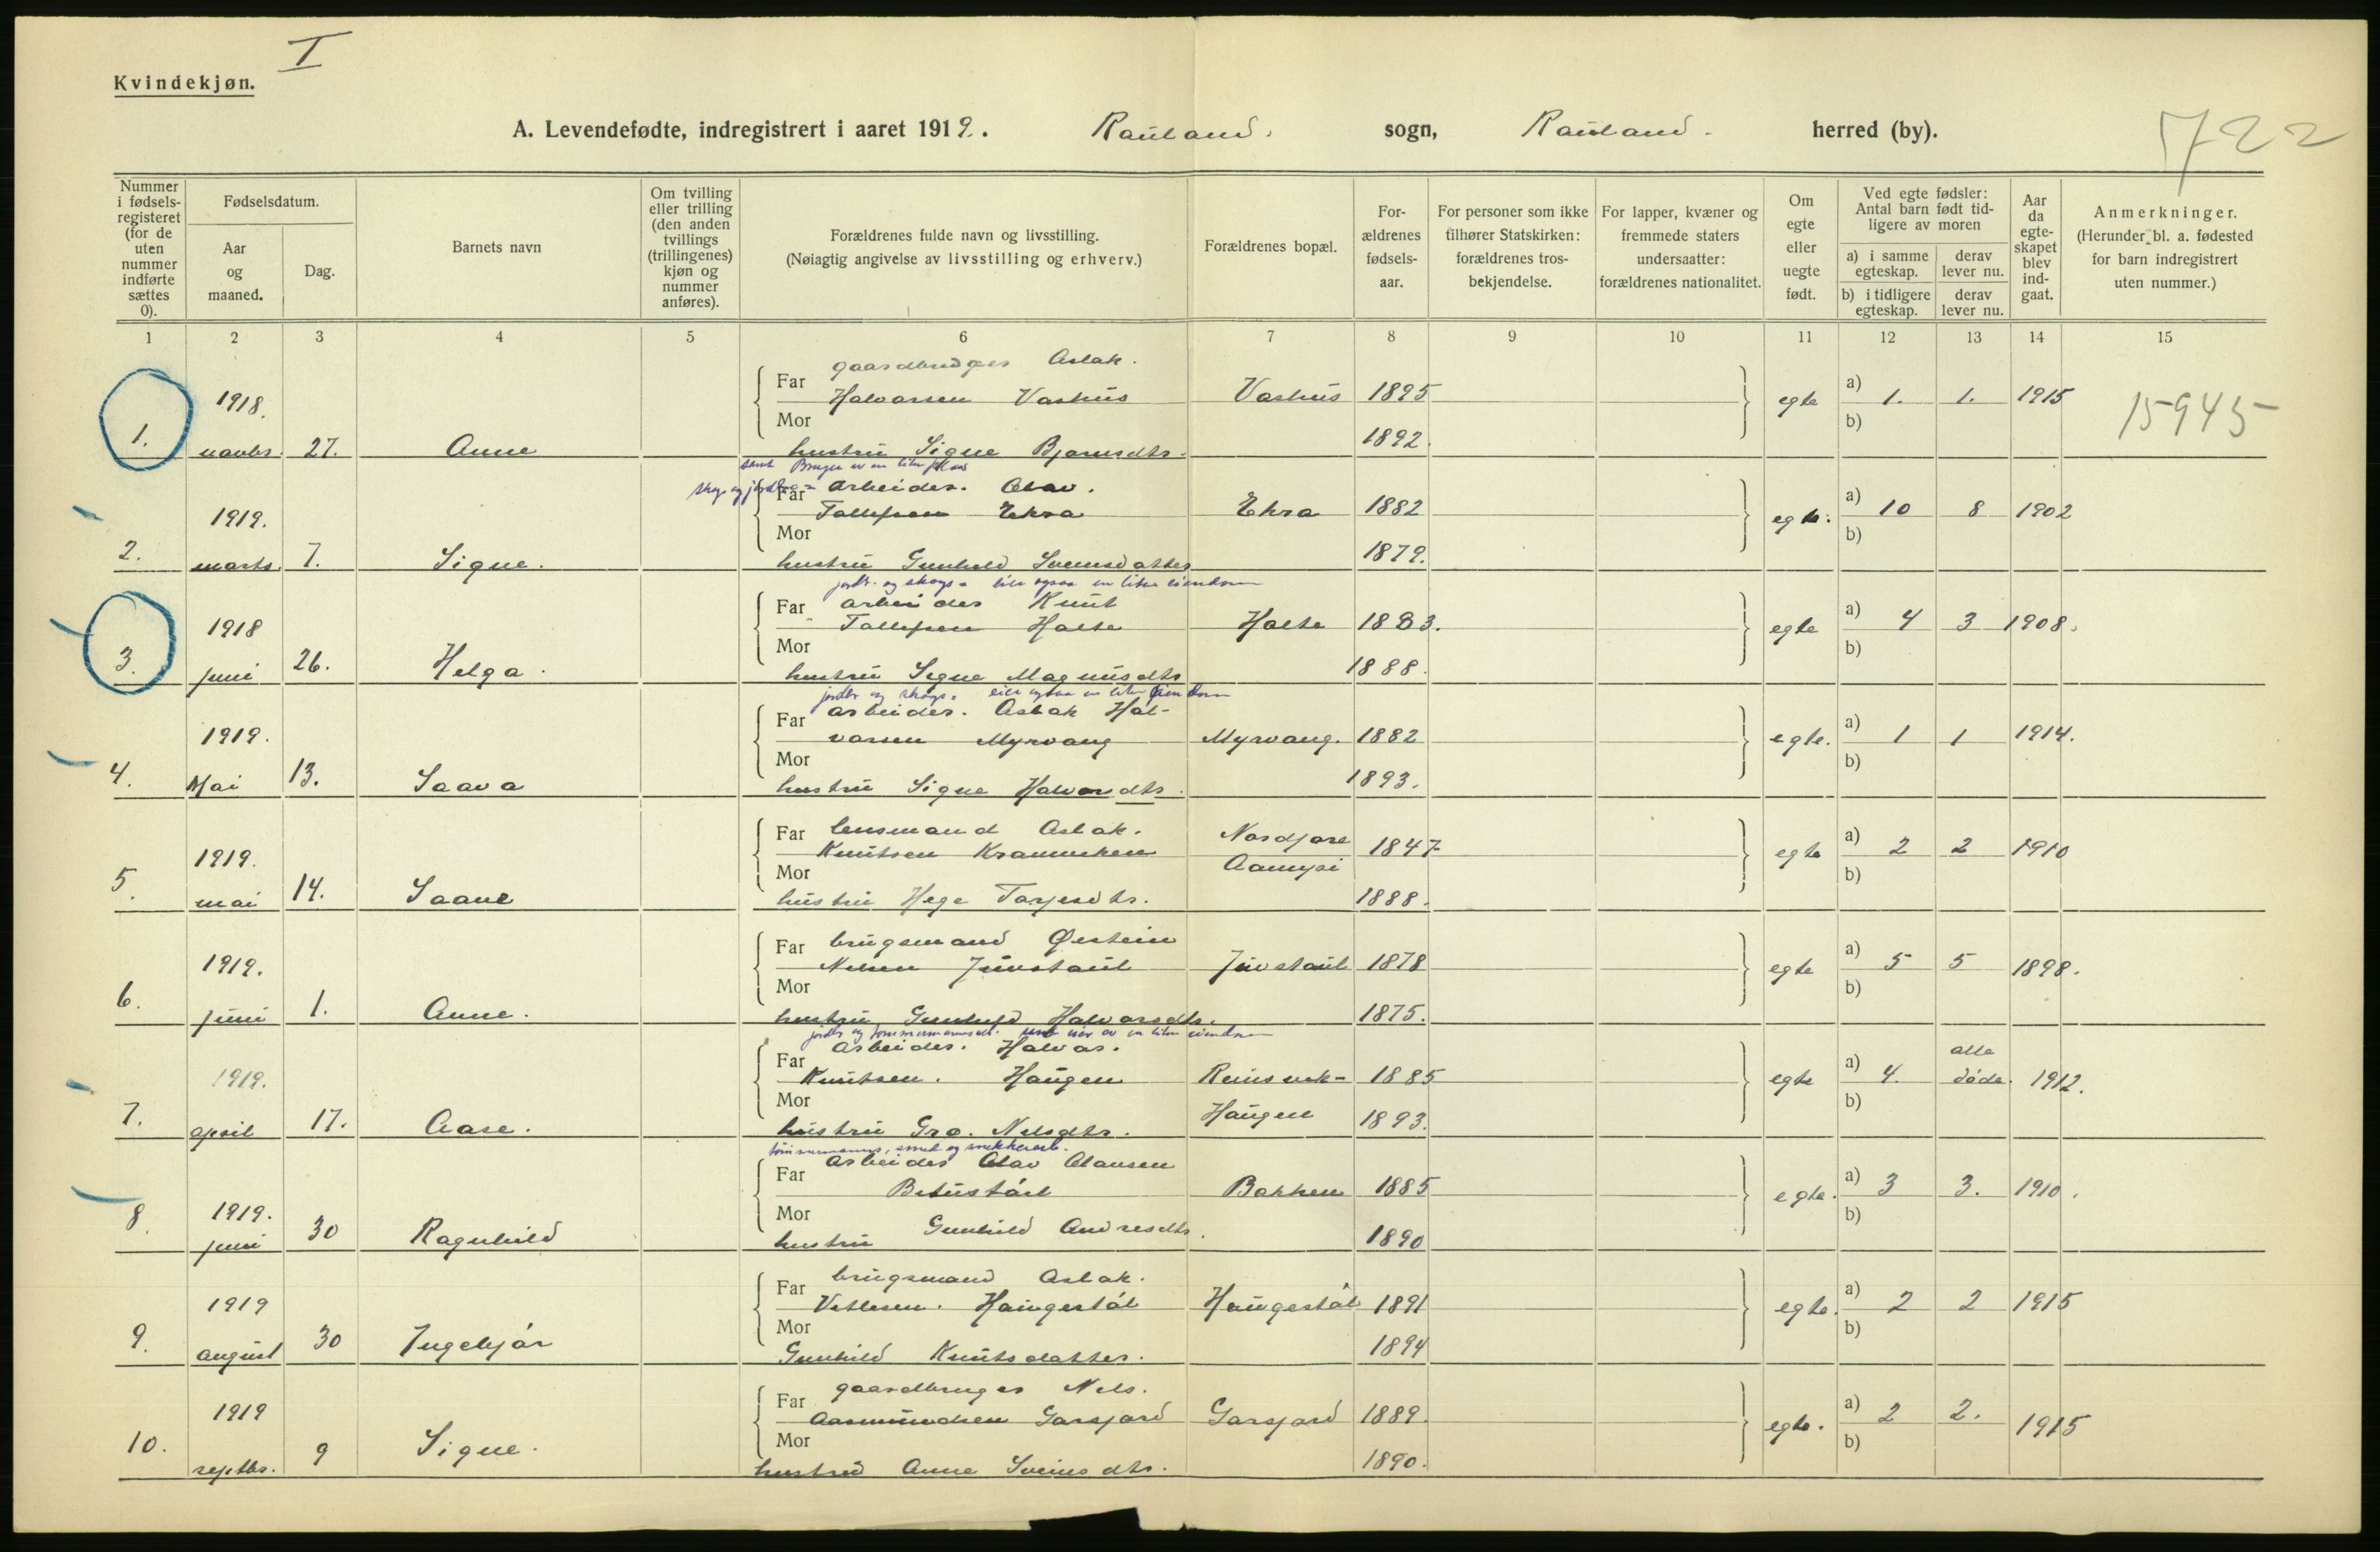 I
Kvindekjøn.
A. Levendefødte, indregistrert i aaret 1919. Rauland. sogn, Rauland. herred (by).
722
Nummer i fødsels-registeret (for de uten nummer indførte sættes 0).
Fødselsdatum.
Aar og maaned.
Dag.
Barnets navn
Om tvilling eller trilling (den anden tvillings (trillingenes) kjøn og nummer anføres).
Forældrenes fulde navn og livsstilling.
(Nøiagtig angivelse av livsstilling og erhverv.)
Forældrenes bopæl.
For-ældrenes fødsels-aar.
For personer som ikke tilhører Statskirken: forældrenes tros-bekjendelse.
For lapper, kvæner og fremmede staters undersaatter: forældrenes nationalitet.
Om egte eller uegte født.
Ved egte fødsler: Antal barn født tid-ligere av moren
a) i samme egteskap.
derav lever nu.
b) i tidligere egteskap.
derav lever nu.
Aar da egte-skapet blev ind-gaat.
Anmerkninger.
(Herunder bl. a. fødested for barn indregistrert uten nummer.)
1 2 3 4 5 6 7 8 9 10 11 12 13 14 15
gaardbruger Aslak.
1918. Far Halvorsen Vashus Vashus 1895 egte a) 1. 1. 1915 15945
Mor b)
1. novbr. 27. Anne hustru Signe Bjørnsdtr. 1892.
samt Bruger av en liten plads
skogs og jordbr. = arbeider. Olav.
1919. Far Tollefsen Ekra Ekra 1882 egte. a) 10 8 1902
Mor b)
2. marts 7. Signe. hustru Gunhild Sveinsdatter 1879.
jordbr. og skogs = eier ogsaa en liten eiendom
arbeider Knut
1918 Far Tollefsen Holte Holte 1883. egte a) 4 3 1908.
Mor b)
3. juni 26. Helga. hustru Signe Magnusdtr 1888.
jordbr og skogs = eier ogsaa en liten eiendom
arbeider. Aslak Hal-
1919. Far vorsen Myrvang Myrvang. 1882 egte. a) 1 1 1914.
Mor b)
4. Mai 13. Saava hustru Signe Halvorsdtr. 1893.
Far lensmand Aslak. Nordjore
1919. Knutsen Kromviken Aamysi 1847 egte a) 2 2 1910
Mor b)
5. mai 14. Saave hustru Hege Tarjesdtr. 1888.
Far brugsmand Øistein
1919. Nilsen Juvstaul Juvstaul 1878 egte a) 5 5 1898.
Mor b)
6. juni 1. Anne. hustru Gunhild Halvorsdtr. 1875.
jordbr og tømmermannsarb. samt eier av en liten eiendom
arbeider. Halvor. alle
1919. Far Knutsen. Haugen Reinsvek- 1885 egte a) 4. døde. 1912.
Mor Haugen b)
7. april 17. Aase. hustru Gro. Nilsdtr. 1893.
tømmermanns, smed og snekkerarb.
arbeider Olav Olavsen
1919. Far Bitustøil Bakken 1885 egte. a) 3 3. 1910.
Mor b)
8. juni 30 Ragnhild hustru Gunhild Andresdtr. 1890
Far brugsmand Aslak.
1919 Vetlesen. Haugestøl Haugestøl 1891 egte. a) 2 2 1915
Mor b)
9. august 30 Ingebjør Gunhild Knutsdatter. 1894
gaardbruger Nils.
1919 Far Aasmundsen Garsjord Garsjord 1889. egte. a) 2 2. 1915
Mor b)
10. septbr. 9 Signe. hustru Anne Sveinsdtr. 1890.